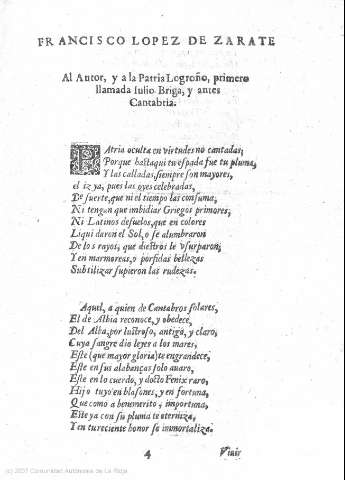 FRANCISCO LOPEZ DE ZARATE
Al Autor, y a la Patria Logroño, primero
llamada Iulio Briga, y antes
Cantabria.
PAtria oculta en virtudes no cantadas,
Porque hasta qui tu espada fue tu pluma,
Y las calladas, siempre son mayores,
el iz ya, pues las oyes celebradas,
De suerte, que ni el tiempo las consuma,
Ni tengan que imbidiar Griegos primores,
Ni Latinos desuelos, que en colores
Liquidaron el Sol, o se alumbraron
De los rayos, que diestros le vsurparon;
Y en marmoreas, o porfidas bellezas
Subtilizar supieron las rudezas.
Aquel, a quien de Cantabros solares,
El de Albia reconoce, y obedece,
Del Alba, por lustroso, antiga, y claro,
Cuya sangre dio leyes a los mares,
Este (que mayor gloria) te engrandece,
Este en sus alabanças solo auaro,
Este en lo cuerdo, y docto Fenix raro,
Hijo tuyo en blasones, y en fortuna,
Que como a benemerito, importuna,
Este ya con su pluma te eterniza,
Y en tu reciente honor se immortaliza.
4 Viuir
(c) 2007 Comunidad Autónoma de La Rioja